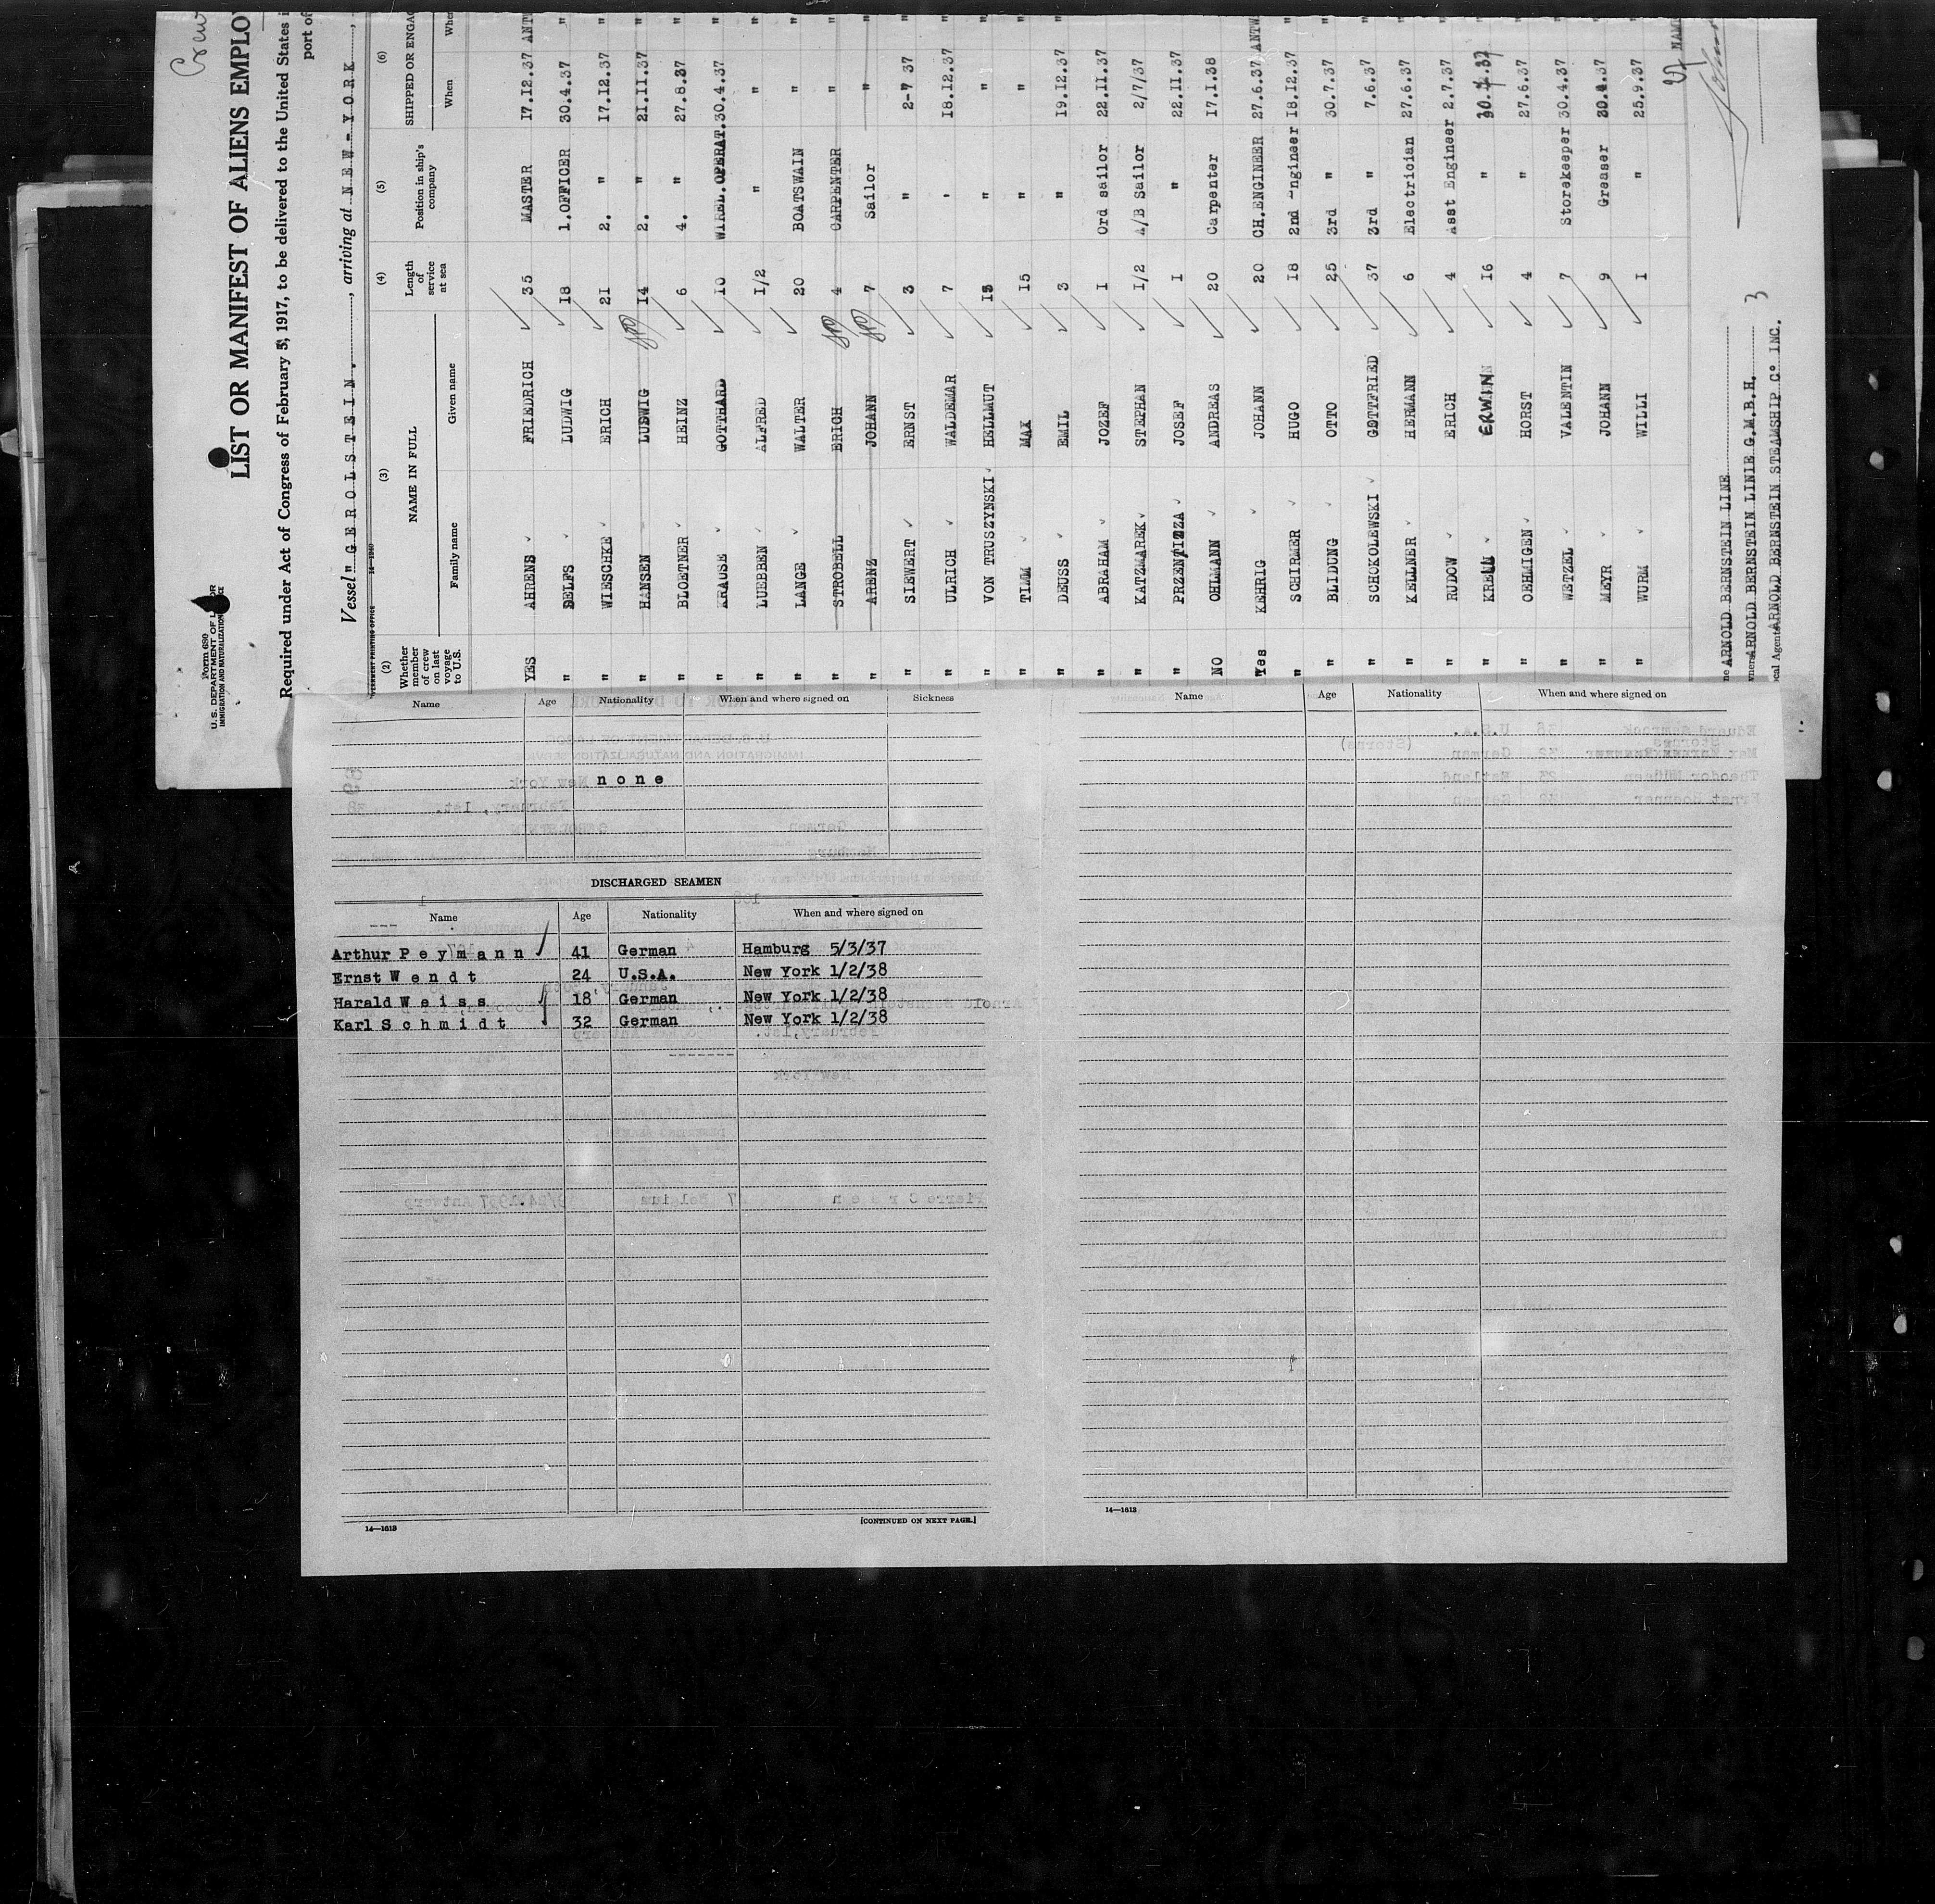 Crew
Form 680
U.S. DEPARTMENT OF LABOR
IMMIGRATION AND NATURALIZATION SERVICE
LIST OR MANIFEST OF ALIENS EMPLO
Required under Act of Congress of February 5, 1917, to be delivered to the United States i
port of
Vessel "GEROLSTEIN.", arriving at NEW-YORK,
(2) (3) (4) (5) (6)
Whether member of crew on last voyage to U.S. NAME IN FULL Length of service at sea Position in ship's company SHIPPED OR ENGAG
Family name Given name When Wher
YES AHRENS FRIEDRICH 35 MASTER 17.12.37 ANTW
" DELFS LUDWIG 18 1.OFFICER 30.4.37 "
" WIESCHKE ERICH 21 2. " 17.12.37 "
" HANSEN LUDWIG 14 2. " 21.11.37 "
" BLOETNER HEINZ 6 4. " 27.8.37 "
" KRAUSE GOTTHARD 10 WIREL.OPERAT. 30.4.37 "
" LUEBBEN ALFRED 1/2 " " "
" LANGE WALTER 20 BOATSWAIN " "
" STROBELL ERICH 4 CARPENTER " "
" ARENZ JOHANN 7 Sailor " "
" SIEWERT ERNST 3 " 2-7 37 "
" ULRICH WALDEMAR 7 ' 18.12.37 "
" VON TRUSZYNSKI HELLMUT 15 " " "
" TIMM MAX 15 " " "
" DEUSS EMIL 3 " 19.12.37 "
" ABRAHAM JOZEF 1 Ord sailor 22.11.37 "
" KATZMAREK STEPHAN 1/2 A/B Sailor 2/7/37 "
" PRZENTIZZA JOSEF 1 " 22.11.37 "
NO OHLMANN ANDREAS 20 Carpenter 17.1.38 "
Yes KEHRIG JOHANN 20 CH.ENGINEER 27.6.37 ANTW.
" SCHIRMER HUGO 18 2nd Engineer 18.12.37 "
" BLIDUNG OTTO 25 3rd " 30.7.37 "
" SCHOKOLEWSKI GOTTFRIED 37 3rd " 7.6.37 "
" KELLNER HERMANN 6 Electrician 27.6.37 "
" RUDOW ERICH 4 Asst Engineer 2.7.37 "
" KRELL ERWIN 16 " "
" OEHMIGEN HORST 4 " 27.6.37 "
" WETZEL VALENTIN 7 Storekeeper 30.4.37 "
" MEYR JOHANN 9 Greaser 30.4.37 "
" WURM WILLI 1 " 25.9.37 "
27 NAM
ARNOLD BERNSTEIN LINE
ARNOLD BERNSTEIN LINIE G.M.B.H. 3
ARNOLD BERNSTEIN STEAMSHIP Co INC.
Name Age Nationality When and where signed on Sickness
none
DISCHARGED SEAMEN
Name Age Nationality When and where signed on
Arthur Peymann 41 German Hamburg 5/3/37
Ernst Wendt 24 U.S.A. New York 1/2/38
Harald Weiss 18 German New York 1/2/38
Karl Schmidt 32 German New York 1/2/38
14—1613
[CONTINUED ON NEXT PAGE.]
Name Age Nationality When and where signed on
14—1613